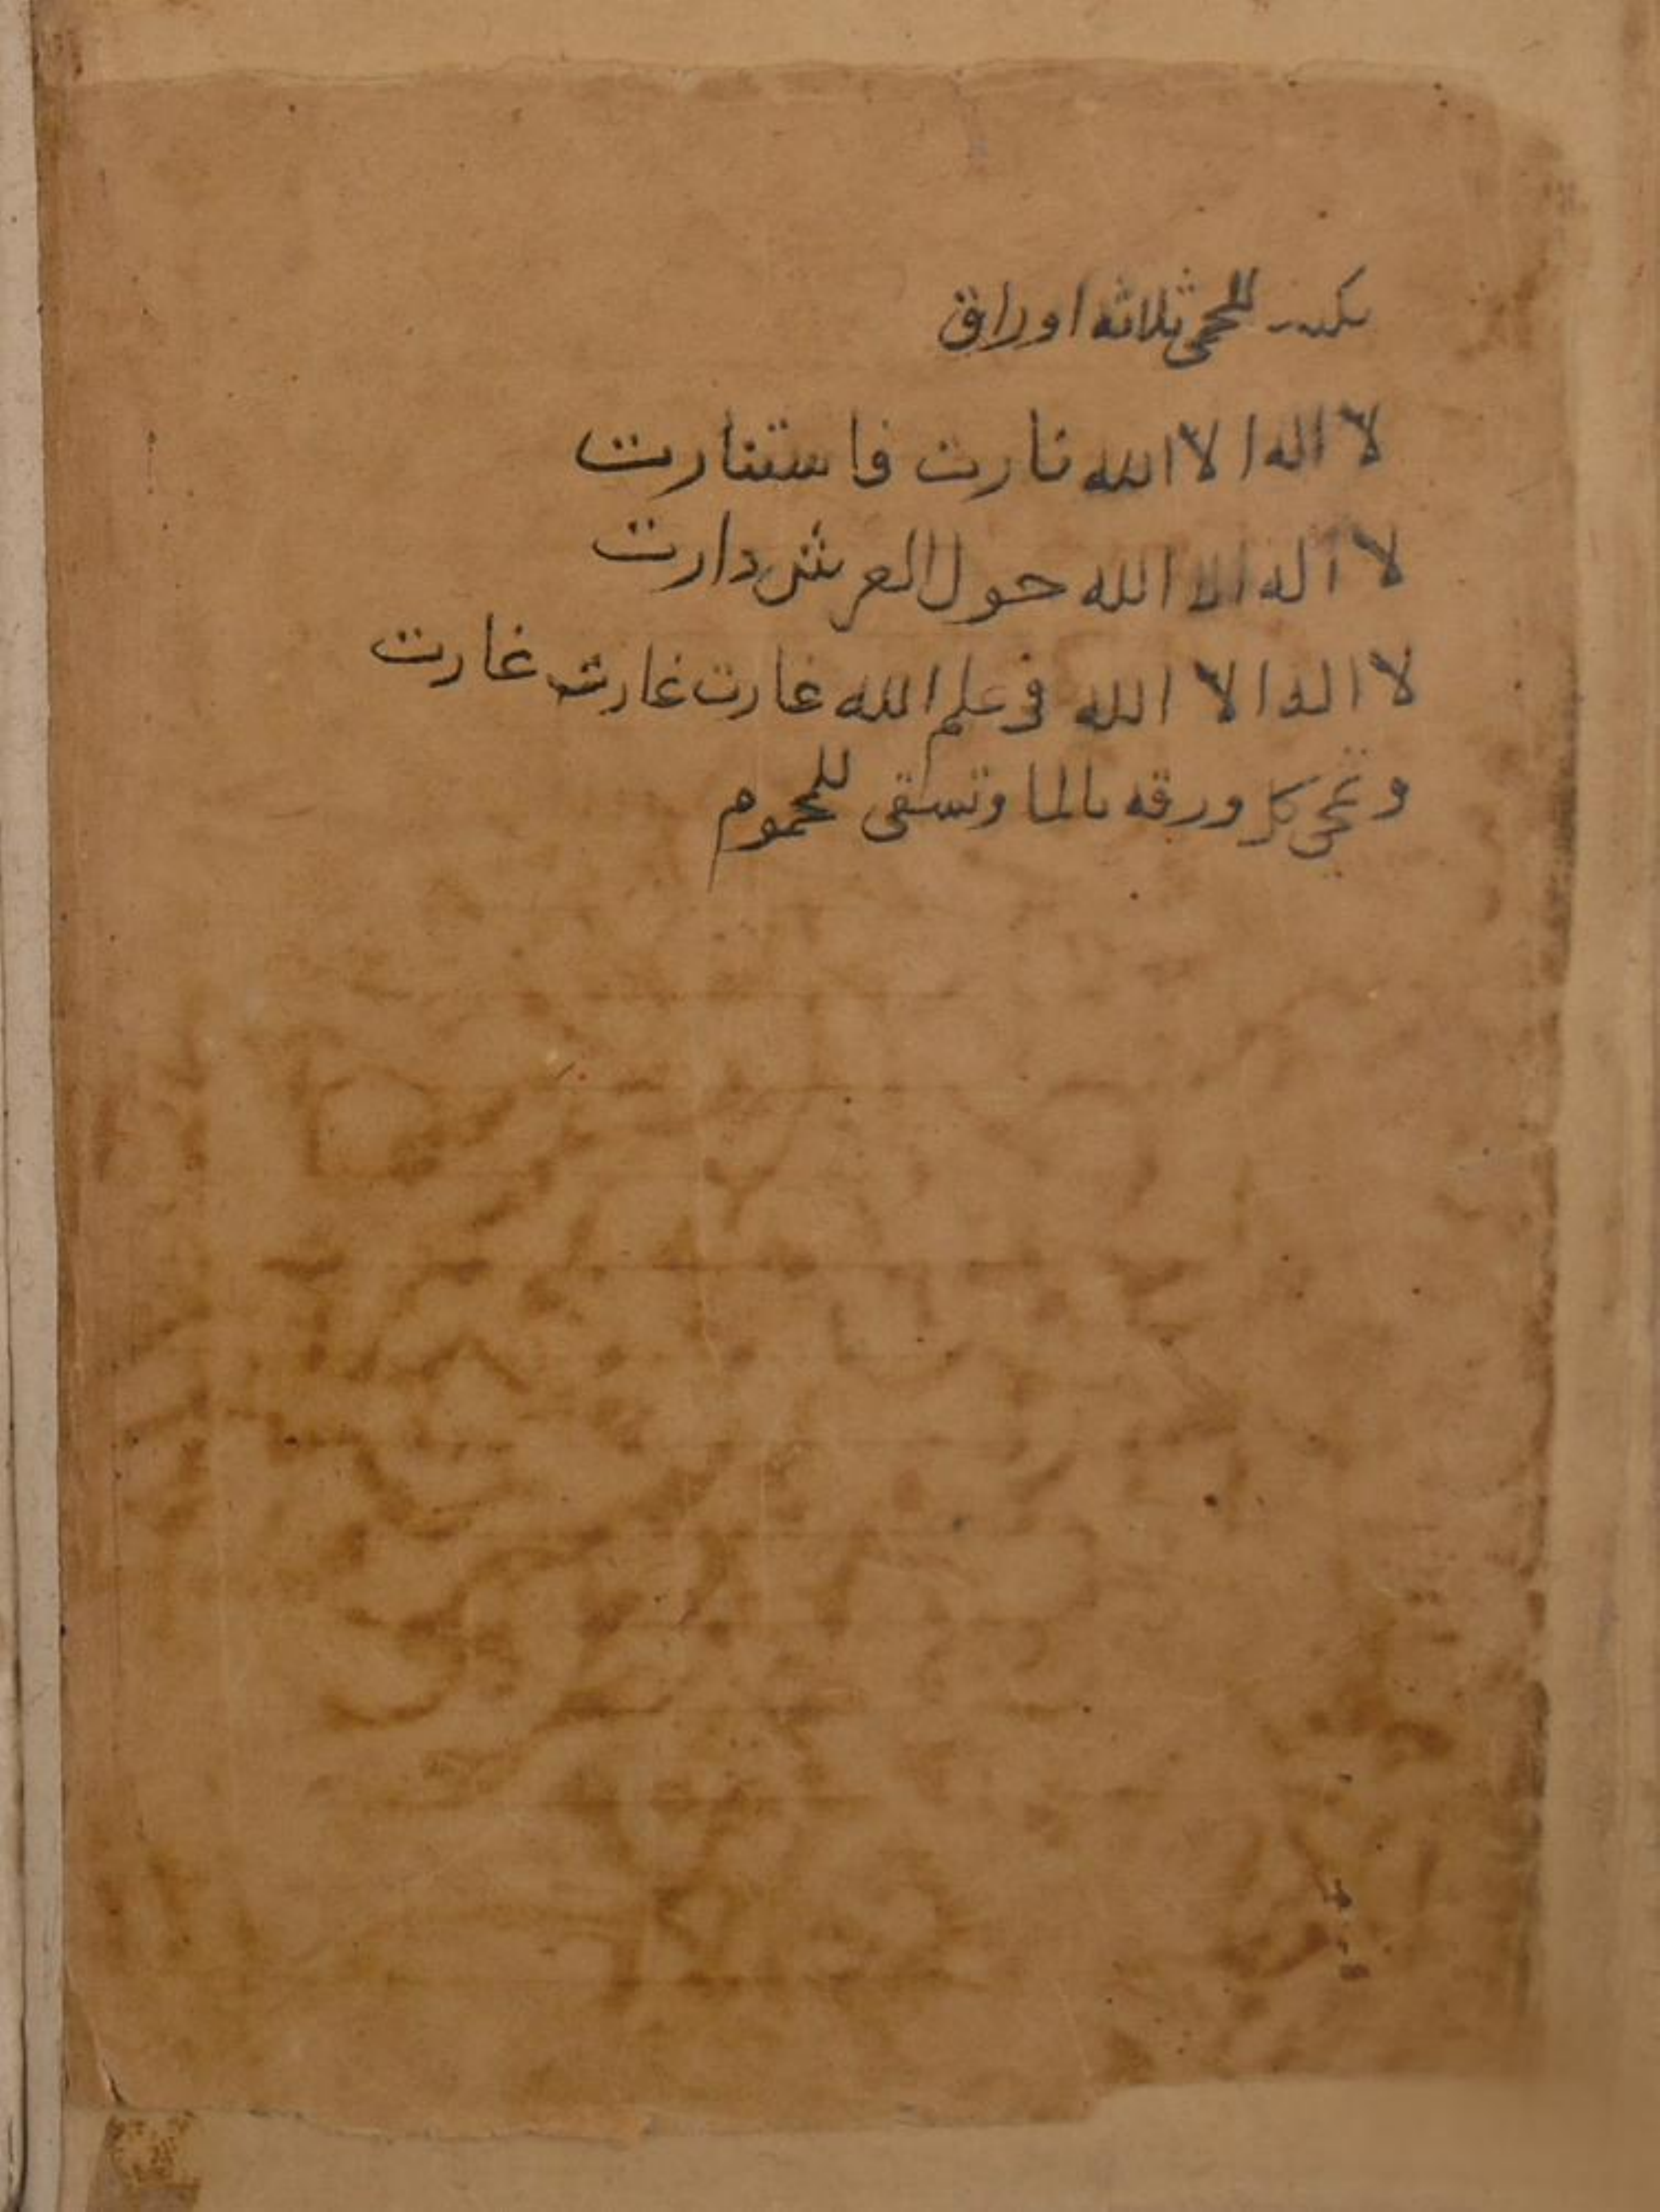 يكتب للحمى ثلاثه اوراق
لا اله الا الله نارت فاستنارت
لا اله الا الله حول العرش دارت
لا اله الا الله في علم الله غارت غارت غارت
وتمحى كل ورقه بالما وتسقى للمحموم